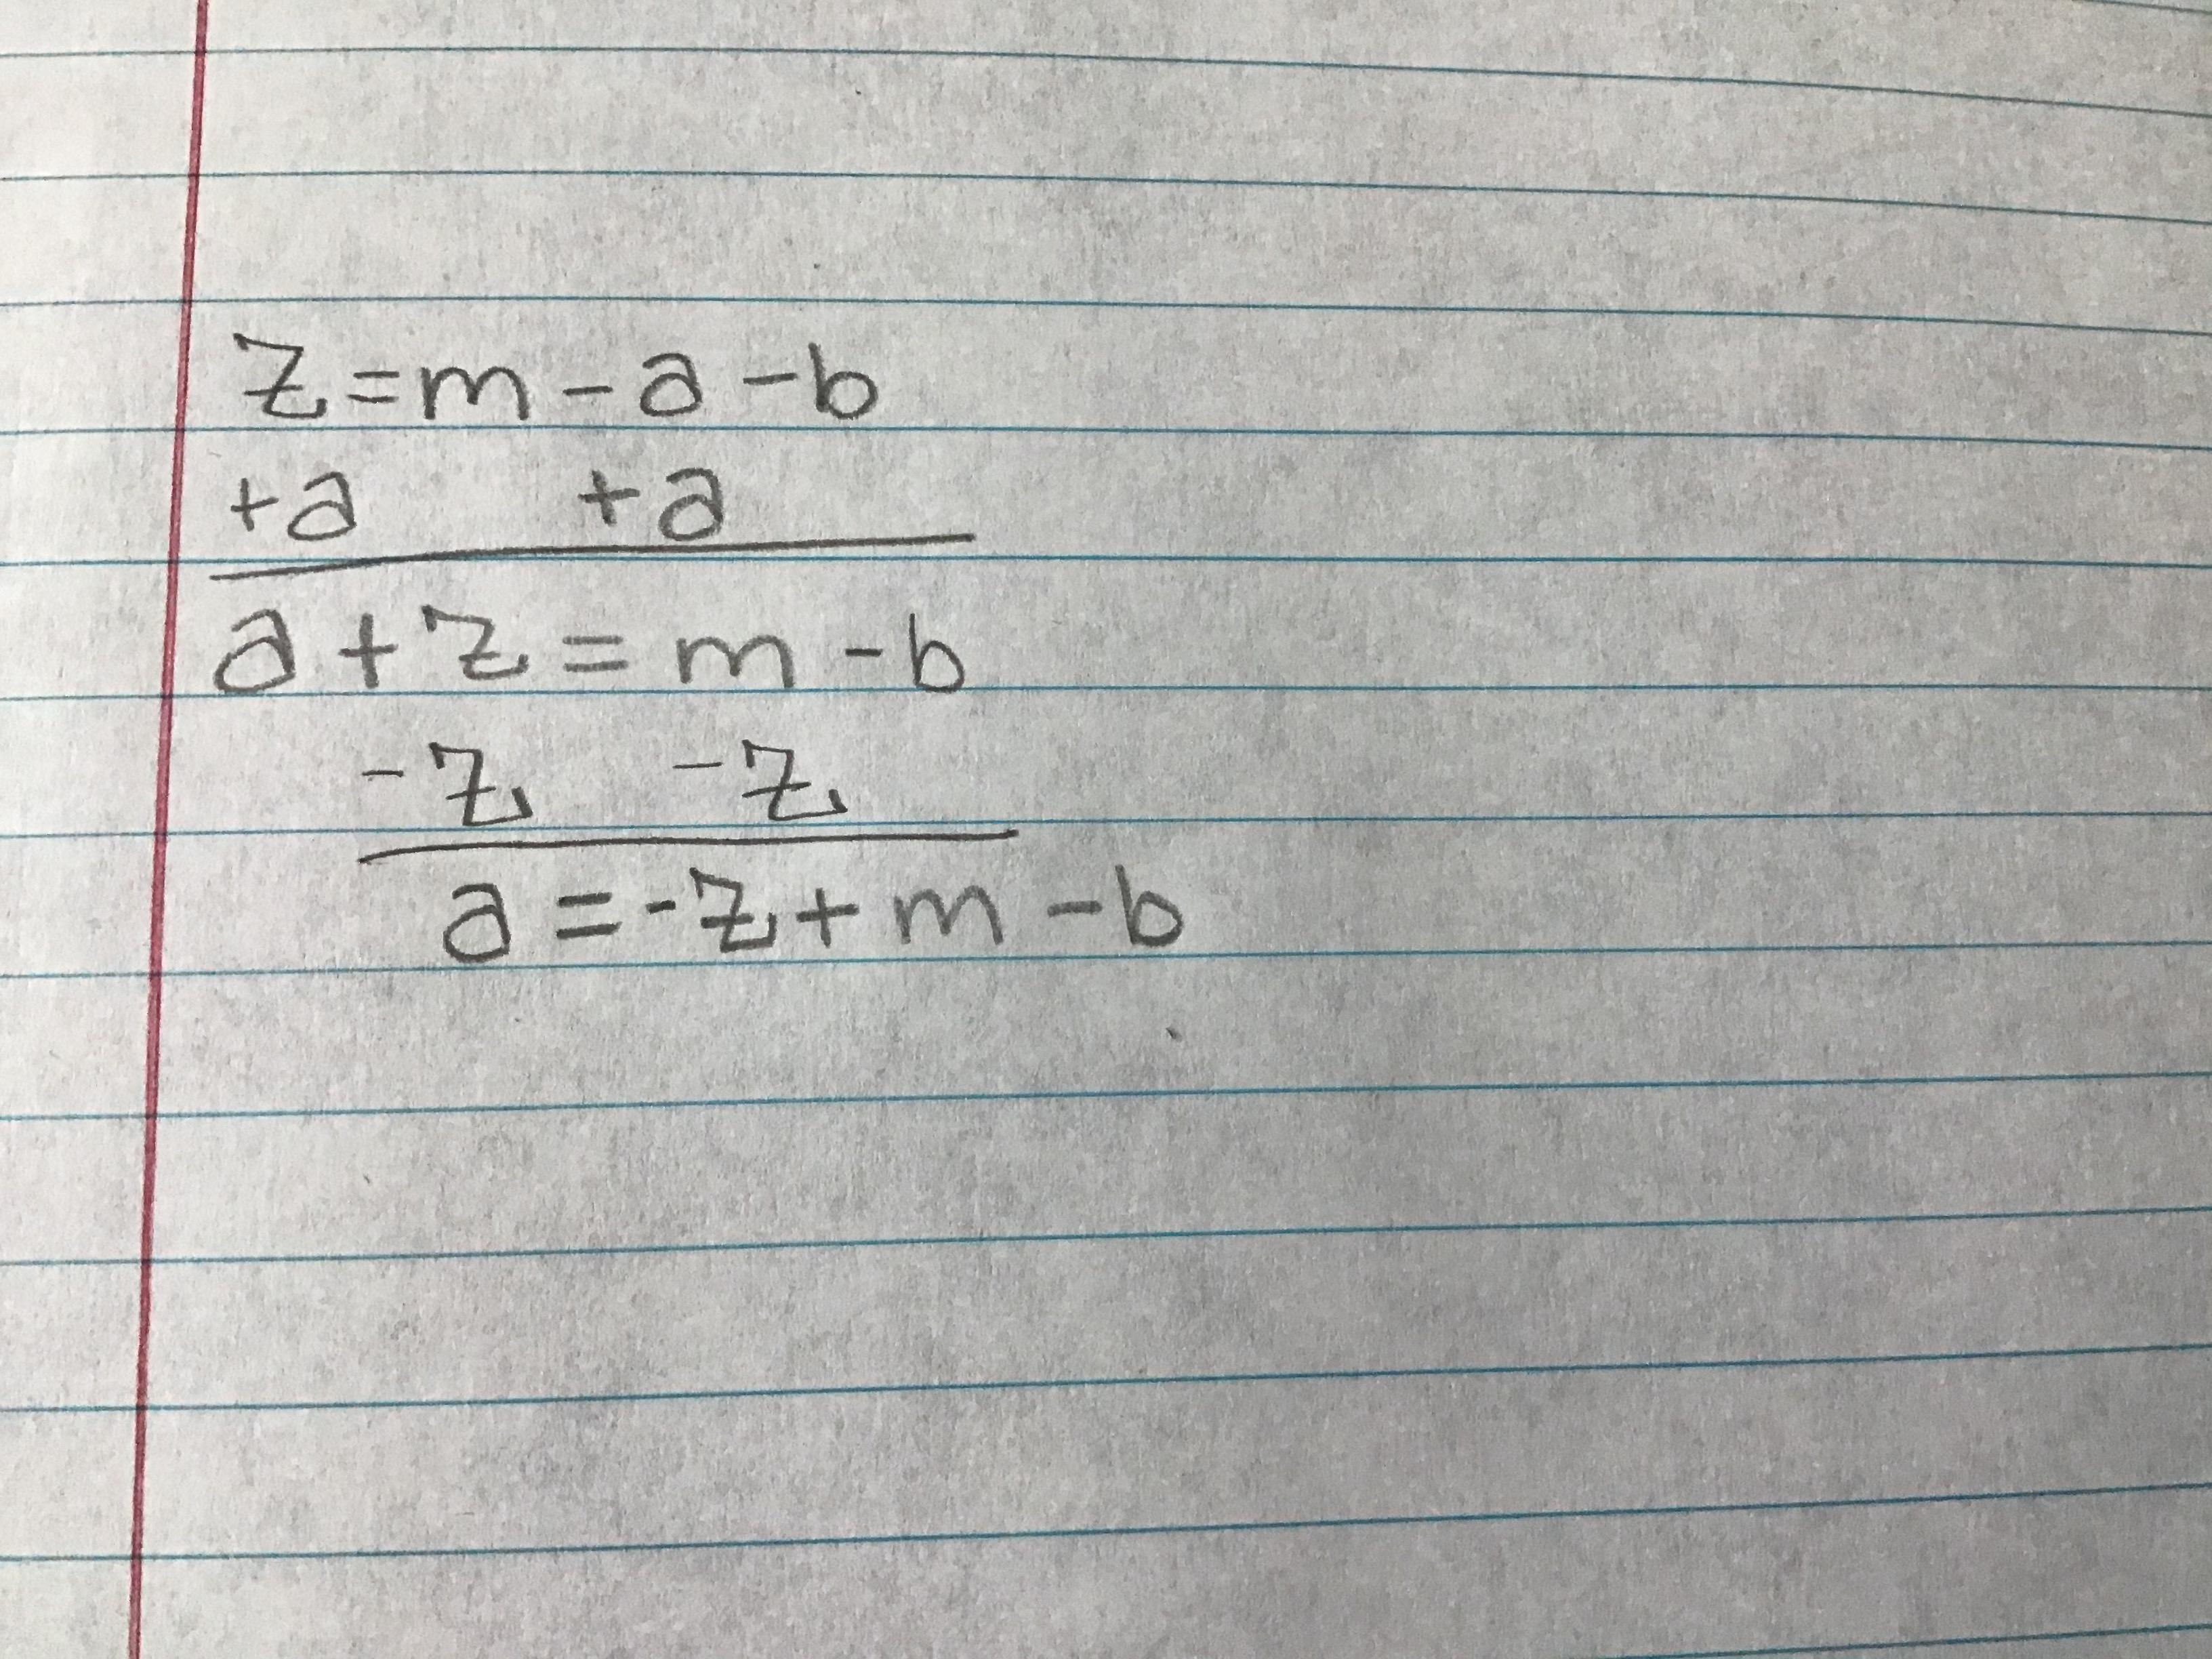 z=m-a-b
+a +a
a+z=m-b
-z -z
a=-z+m-b